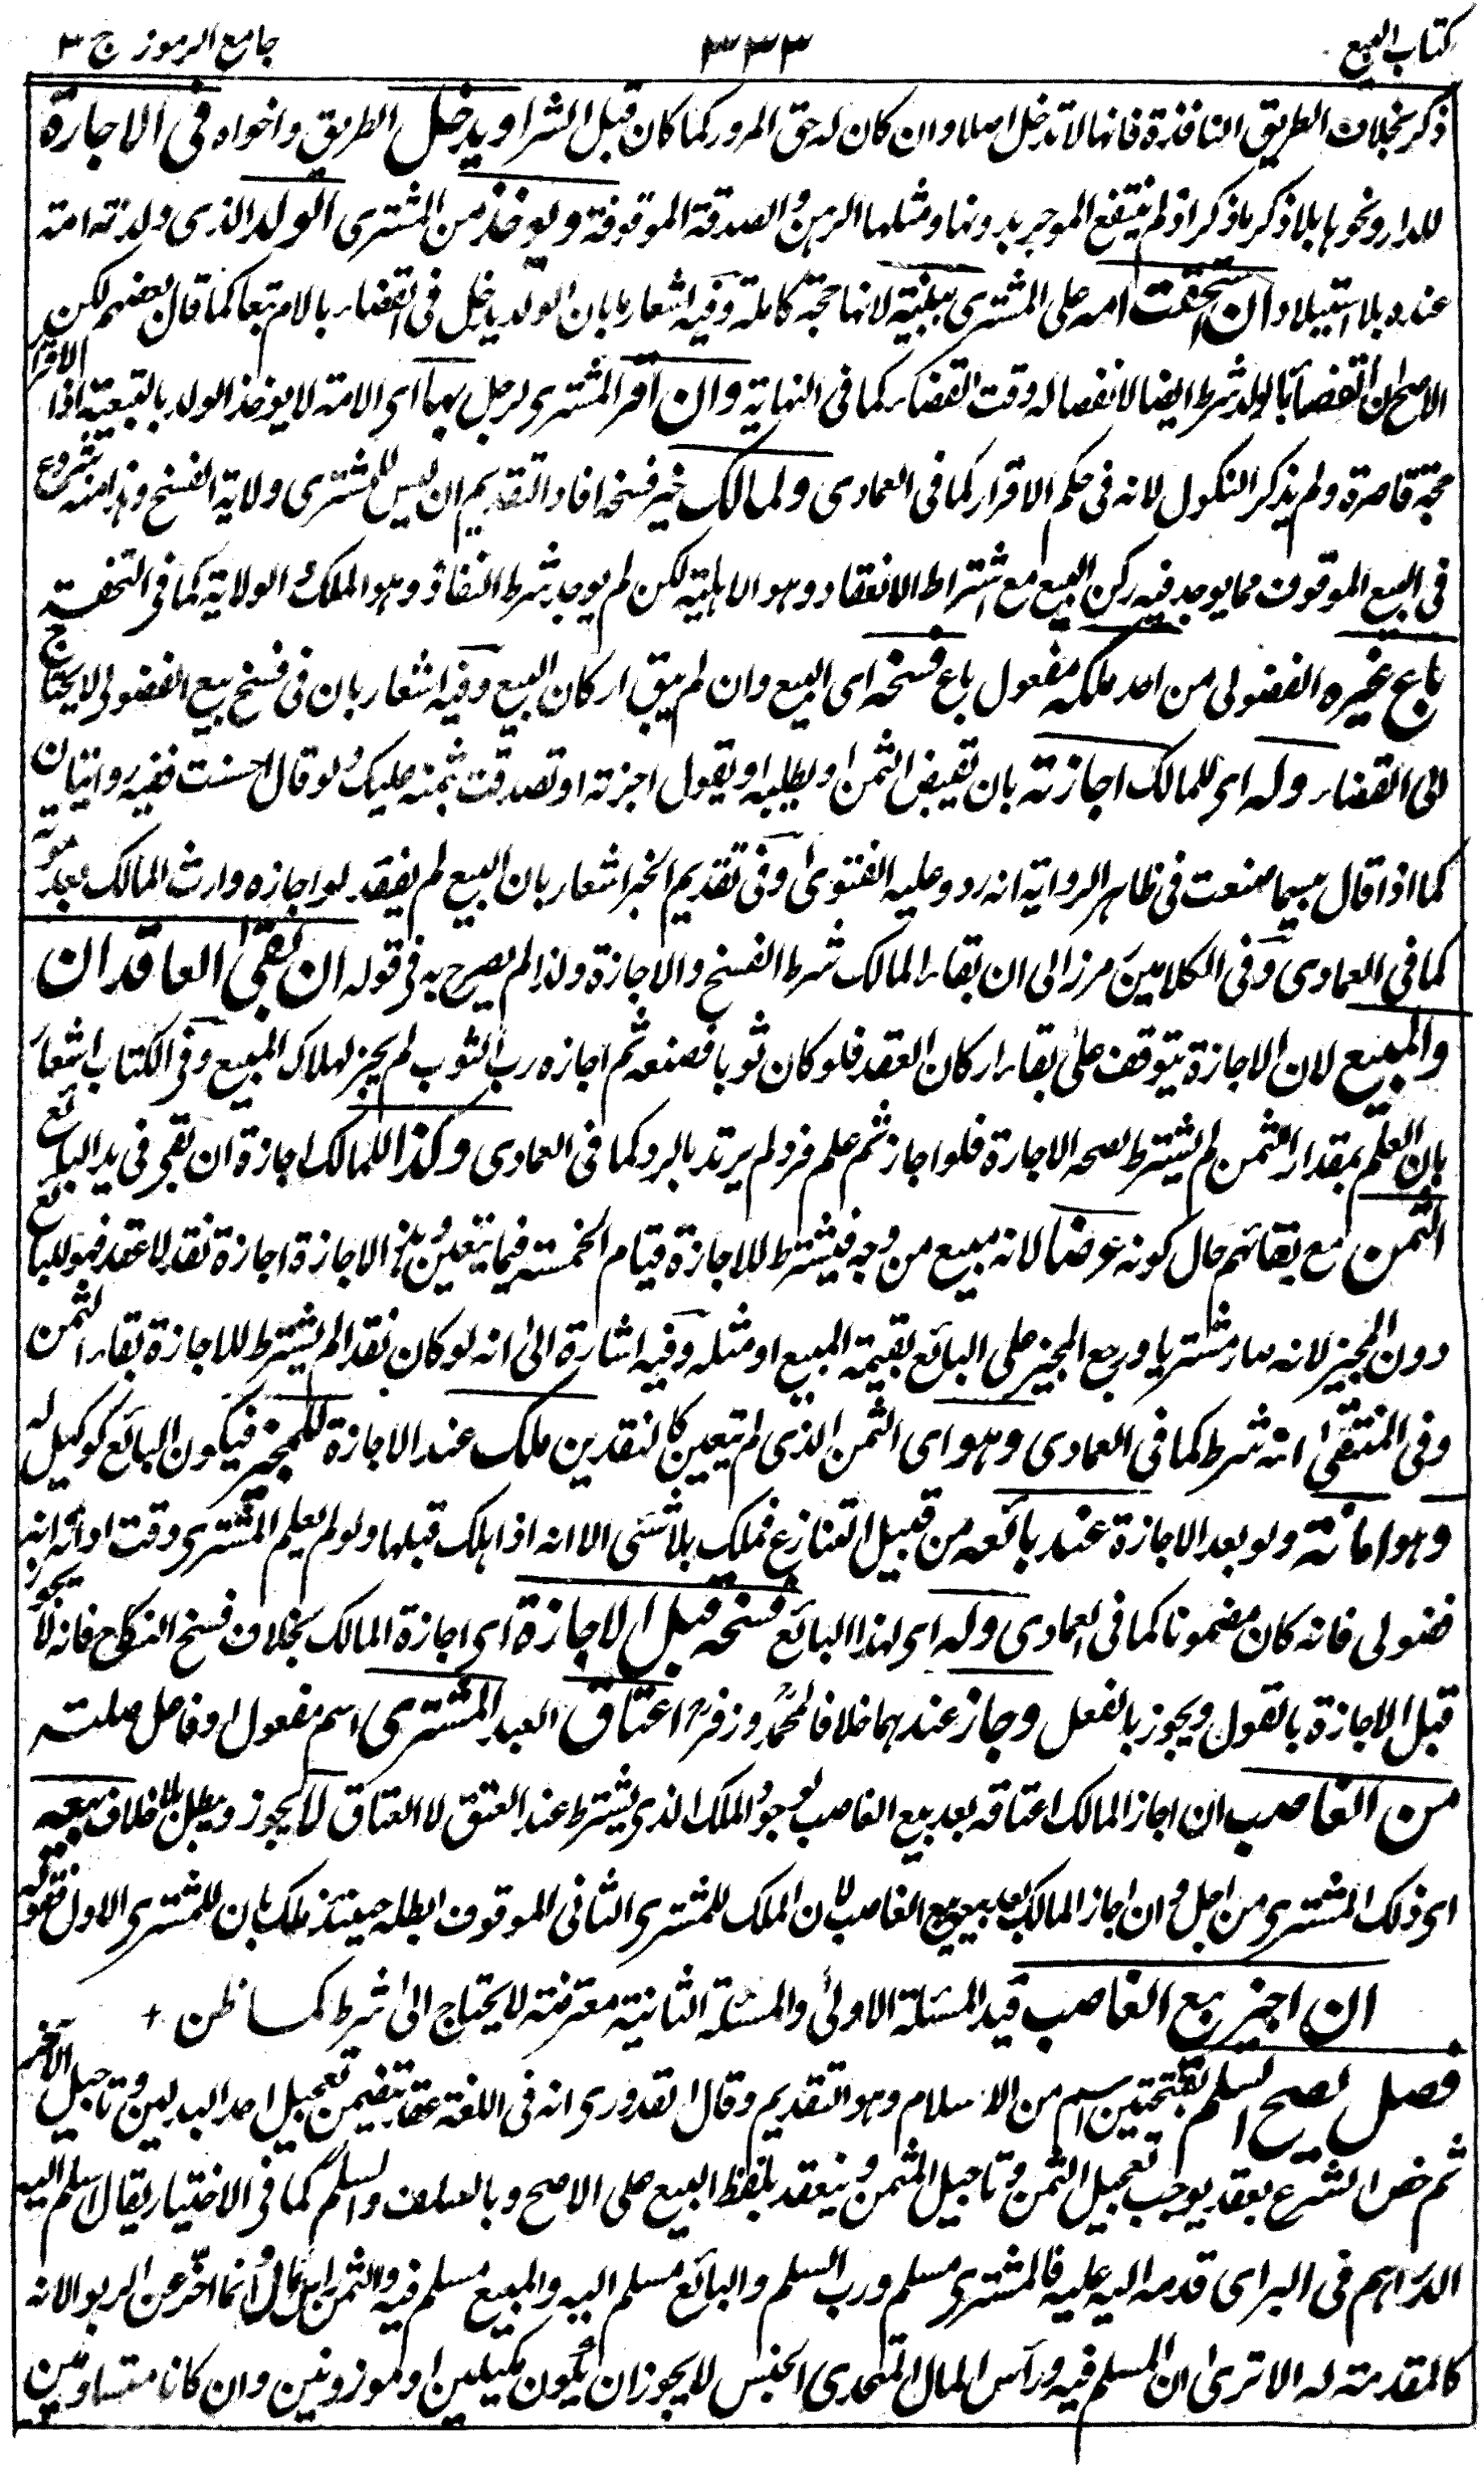 كتاب البيع ٣٣٣ جامع الرموز ج ٣
ذكر بخلاف الطريق النافذة فانها لا تدخل اصلا وان كان له حق المرور كما كان قبل الشرا ويدخل الطريق واخواه فى الاجارة
للدار ونحوها بلا ذكر ما ذكر اذ لم ينتفع الموجر بدونها ومثلها الرهن والصدقة الموقوفة ويوخذ من المشترى الولد الذى ولدته امته
عنده بلا استيلاد ان استحقت امه على المشترى ببينة لانها حجة كاملة وفيه اشعار بان الولد يدخل فى القضاء بالام تبعا كما قال بعضهم لكن
الاصح ان القضاء بالولد شرط ايضا لانفصاله وقت القضاء كما فى النهاية وان اقر المشترى لرجل بها اى الامة لا يوخذ الولد بالتبعية اذ الاقرار
حجة قاصرة ولم يذكر النكول لانه فى حكم الاقرار كما فى العمادى ولمالك غيره فسخه افاد التقديم ان ليس للمشترى ولاية الفسخ وهذا منه شروع
فى البيع الموقوف مما يوجد فيه ركن البيع مع اشتراط الانعقاد وهو الاهلية لكن لم يوجد شرط النفاذ وهو الملك والولاية كما فى التحفة
باع غيره الفضولى من احد ملكه مفعول باع فسخه اى البيع وان لم يبق اركان البيع وفيه اشعار بان فى فسخ بيع الفضولى لا يحتاج
الى القضاء وله اى للمالك اجازته بان يقبض الثمن او يطلبه او يقول اجزته او تصدقت بثمنه عليك ولو قال احسنت ففيه روايتان
كما اذا قال بيسما صنعت فى ظاهر الرواية انه رد وعليه الفتوى وفى تقديم الخبر اشعار بان البيع لم ينفذ لو اجازه وارث المالك بعد موته
كما فى العمادى وفى الكلامين رمز الى ان بقاء المالك شرط الفسخ والاجازة ولذا لم يصرح به فى قوله ان بقى العاقدان
والمبيع لان الاجازة يتوقف على بقاء اركان العقد فلو كان ثوبا فصبغه ثم اجازه رب الثوب لم يجز لهلاك المبيع وفى الكتاب اشعار
بان العلم بمقدار الثمن لم يشترط لصحة الاجازة فلو اجاز ثم علم فرد لم يرتد بالرد كما فى العمادى وكذا للمالك اجازة ان بقى فى يد البائع
الثمن مع بقائهم حال كونه عرضا لانه مبيع من وجه فيشترط للاجازة قيام الخمسة فيما يتعين وهذه الاجازة اجازة نقد لا عقد فهو للبائع
دون المجيز لانه صار مشتريا ورجع المجيز على البائع بقيمة المبيع او مثله وفيه اشارة الى انه لو كان نقدا لم يشترط للاجازة بقاء الثمن
وفى المنتقى انه شرط كما فى العمادى وهو اى الثمن الذى لم يتعين كالنقدين ملك عند الاجازة للمجيز فيكون البائع كوكيل له
وهو امانة ولو بعد الاجازة عند بائعه من قبيل التنازع فملك بلا شىء الا انه اذا هلك قبلها ولو لم يعلم المشترى وقت ادائه انه
فضولى فانه كان مضمونا كما فى العمادى وله اى لهذا البائع فسخه قبل الاجازة اى اجازة المالك بخلاف فسخ النكاح فانه لا يجوز
قبل الاجازة بالقول ويجوز بالفعل وجاز عندهما خلافا لمحمد وزفر اعتاق العبد المشترى اسم مفعول او فاعل صلته
من الغاصب ان اجاز المالك اعتاقه بعد بيع الغاصب لوجود الملك الذى يشترط عند العتق لا العتاق لا يجوز ويبطل بلا خلاف بيعه
اى ذلك المشترى من اجل وان اجاز المالك بعد بيعه بيع الغاصب لان الملك للمشترى الثانى الموقوف ابطله حينئذ ملك بات للمشترى الاول وقوله
ان اجيز بيع الغاصب قيد المسئلة الاولى والمسئلة الثانية معترضة لا يحتاج الى شرط كما ظن +
فصل يصح السلم بفتحتين اسم من الاسلام وهو التقديم وقال القدورى انه فى اللغة عقد يتضمن تعجيل احد البدلين وتاجيل الاخر
ثم خص الشرع بعقد يوجب تعجيل الثمن وتاجيل المثمن وينعقد بلفظ البيع على الاصح وبالسلف والسلم كما فى الاختيار يقال اسلم اليه
الدراهم فى البر اى قدمه اليه عليه فالمشترى مسلم ورب السلم والبائع مسلم اليه والمبيع مسلم فيه والثمن راس المال وانما اخر عن الربوا لانه
كالمقدمة له الا ترى ان المسلم فيه وراس المال المتحدى الجنس لا يجوز ان يكون مكيلين او موزونين وان كانا متساويين